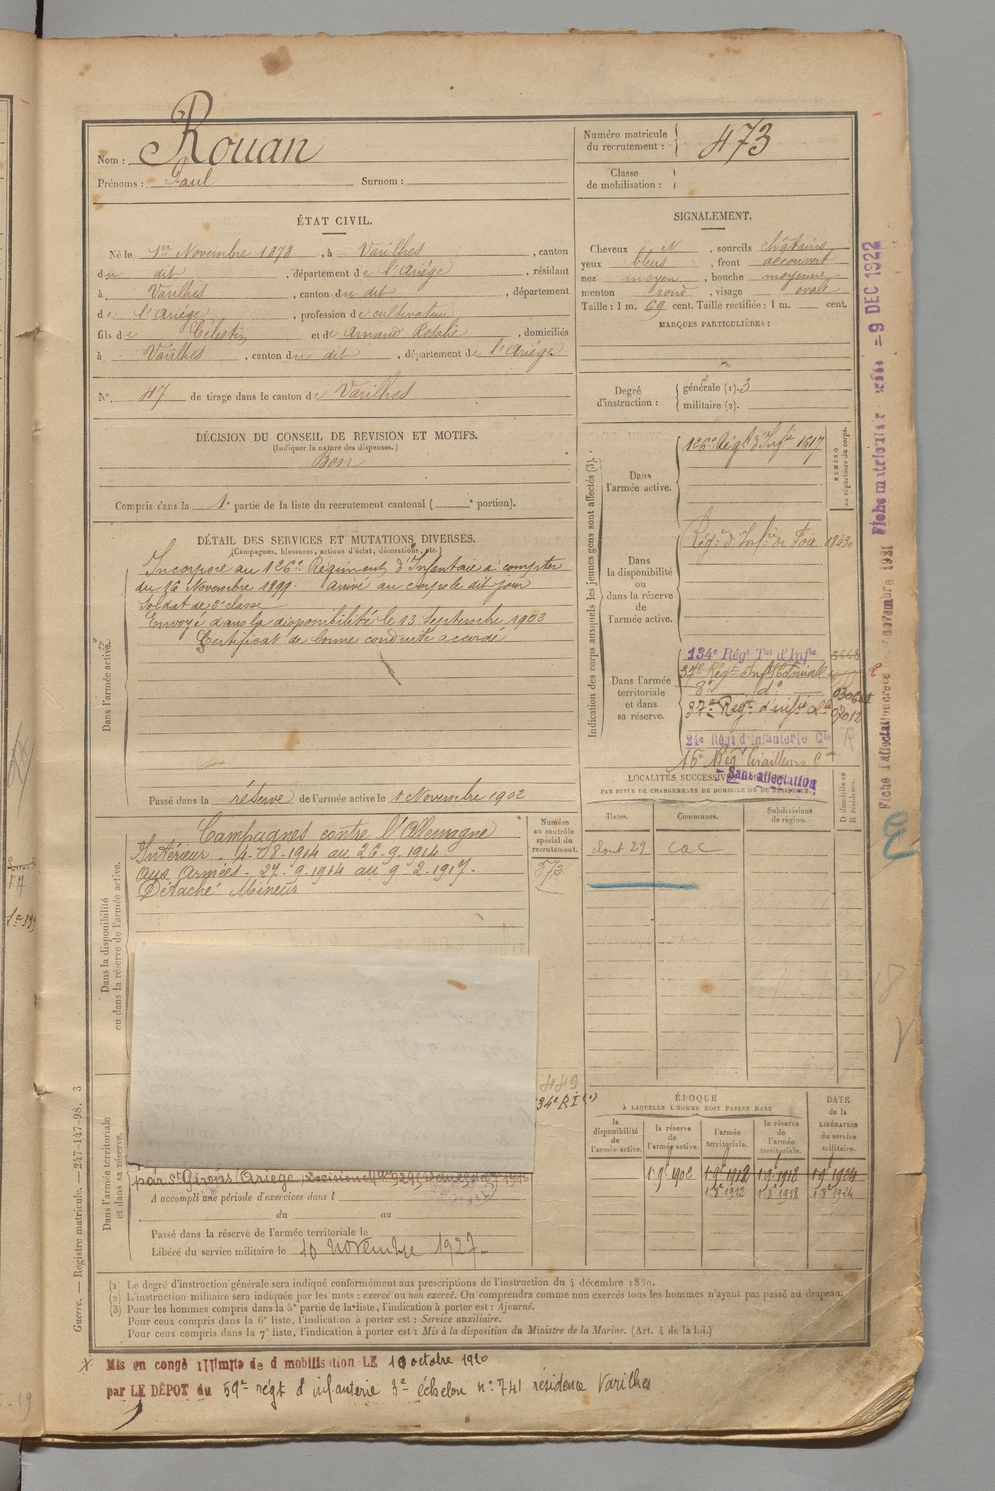 Nom : Rouan
Prénoms : Paul Surnom :
Numéro matricule du recrutement : 473
Classe de mobilisation :
ÉTAT CIVIL.
Né le 1er Novembre 1878, à Varilhes, canton
du dit, département de l'Ariège, résidant
à Varilhes, canton du dit, département
de l'Ariège, profession de cultivateur
fils de Célestin et de Arnaud Rosalie, domiciliés
à Varilhes, canton du dit, département de l'Ariège
N° 47 de tirage dans le canton de Varilhes
SIGNALEMENT.
Cheveux N, sourcils châtains
yeux bleus, front découvert
nez moyen, bouche moyenne
menton rond, visage ovale
Taille : 1 m. 69 cent. Taille rectifiée : 1 m. cent.
MARQUES PARTICULIÈRES :
Degré d'instruction : générale (1). 3
militaire (2).
DÉCISION DU CONSEIL DE REVISION ET MOTIFS.
(Indiquer la nature des dispenses.)
Bon
Compris dans la 1e partie de la liste du recrutement cantonal ( e portion).
DÉTAIL DES SERVICES ET MUTATIONS DIVERSES.
(Campagnes, blessures, actions d'éclat, décorations, etc.)
Dans l'armée active.
Incorporé au 126e Régiment d'Infanterie à compter
du 26 Novembre 1899. Arrivé au corps le dit jour
Soldat de 2e classe
Envoyé dans la disponibilité le 13 Septembre 1902
Certificat de bonne conduite accordé
Passé dans la réserve de l'armée active le 1 Novembre 1902
Indication des corps auxquels les jeunes gens sont affectés (3).
NUMÉRO au répertoire du corps.
Dans l'armée active.
126e Régt d'Infie 1617
Dans la disponibilité ou dans la réserve de l'armée active.
Régt d'Infie de Foix 18430
Dans l'armée territoriale et dans sa réserve.
134e Régt Tal d'Infie 3668
37e Régt Infie Coloniale
8e do
37e Régt d'infie 07010
24e Régt d'Infanterie Cle
16e Régt Tirailleurs
Sans affectation
LOCALITÉS SUCCESSIVES
PAR SUITE DE CHANGEMENTS DE DOMICILE OU DE RÉSIDENCE.
Dates. Communes. Subdivisions de région. D domicile ou R résidence.
Dans la disponibilité ou dans la réserve de l'armée active.
Campagnes contre l'Allemagne
Intérieur. 4-08-1914 au 26-9-1914
aux Armées - 27-9-1914 au 9-2-1917.
Détaché Mineur
Numéro au contrôle spécial du recrutement.
873
449
134e RI
Dans l'armée territoriale et dans sa réserve.
par St Girons (Ariège)
A accompli une période d'exercices dans l
du au
Passé dans la réserve de l'armée territoriale le
Libéré du service militaire le 10 novembre 1927
ÉPOQUE
À LAQUELLE L'HOMME DOIT PASSER DANS
DATE de la LIBÉRATION du service militaire.
la disponibilité de l'armée active. la réserve de l'armée active. l'armée territoriale. la réserve de l'armée territoriale.
1.9bre 1902 1.9bre 1912 1.9bre 1918 1.9bre 1924
1.8bre 1912 1.8bre 1918 1.8bre 1924
(1) Le degré d'instruction générale sera indiqué conformément aux prescriptions de l'instruction du 4 décembre 1889.
(2) L'instruction militaire sera indiquée par les mots : exercé ou non exercé. On comprendra comme non exercés tous les hommes n'ayant pas passé au drapeau.
(3) Pour les hommes compris dans la 5e partie de la liste, l'indication à porter est : Ajourné.
Pour ceux compris dans la 6e liste, l'indication à porter est : Service auxiliaire.
Pour ceux compris dans la 7e liste, l'indication à porter est : Mis à la disposition du Ministre de la Marine. (Art. 4 de la loi.)
Mis en congé illimité de démobilisation LE 10 octobre 1920
par LE DÉPOT du 59e régt d'infanterie 3e échelon n° 741 résidence Varilhes
Guerre. — Registre matricule. — 247-147-98. 3
Fiche matricule -9 DEC 1922
Fiche d'affectation novembre 1921